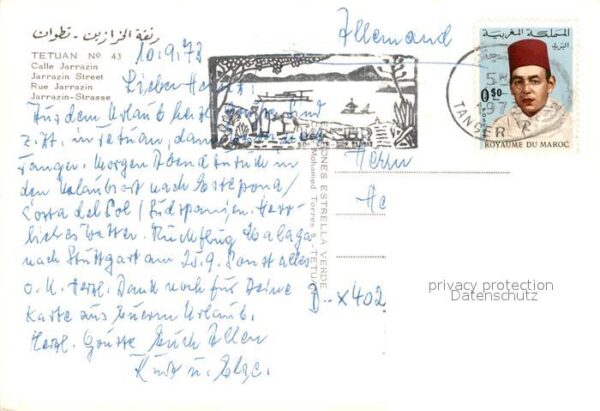 زنقة الخرازين - تطوان
TETUAN Nº 43
Calle Jarrazin
Jarrazin Street
Rue Jarrazin
Jarrazin-Strasse
10.9.73
Lieber
Aus dem Urlaub
z. Zt. in Tetuan, dann
Tanger. Morgen Abend zurück in
den Urlaubsort nach Estepona/
Costa del Sol/Südspanien. Herr-
liches Wetter. Rückflug Malaga
nach Stuttgart am 25.9. Sonst alles
o.K. Herzl. Dank noch für Deine
Karte aus Eurem Urlaub.
Herzl. Grüsse Euch Allen
Kurt u.
Allemand
Herrn
He
D-- X402
ONES ESTRELLA VERDE
Mohamed Torres 5, TETU
المملكة المغربية
البريد
0,50
ROYAUME DU MAROC
TAN ER
197
privacy protection
Datenschutz